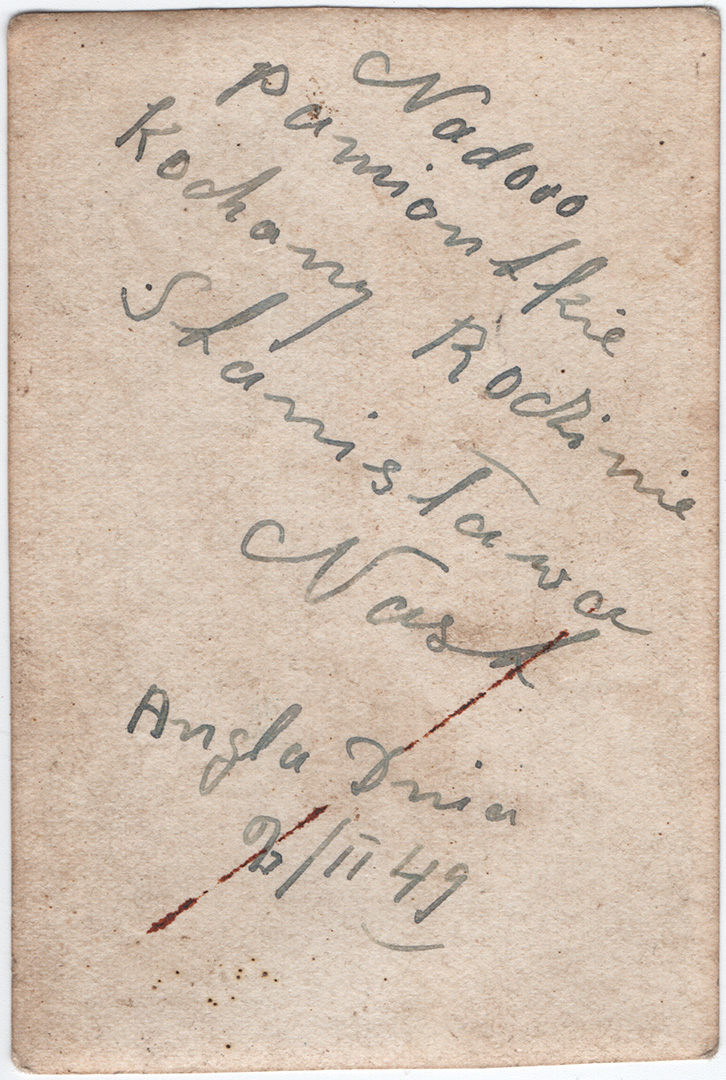 Nadowo
Pamiontkie
Kochany Rodzinie
Stanisława
Nast
Angla Dnia
2/II 49